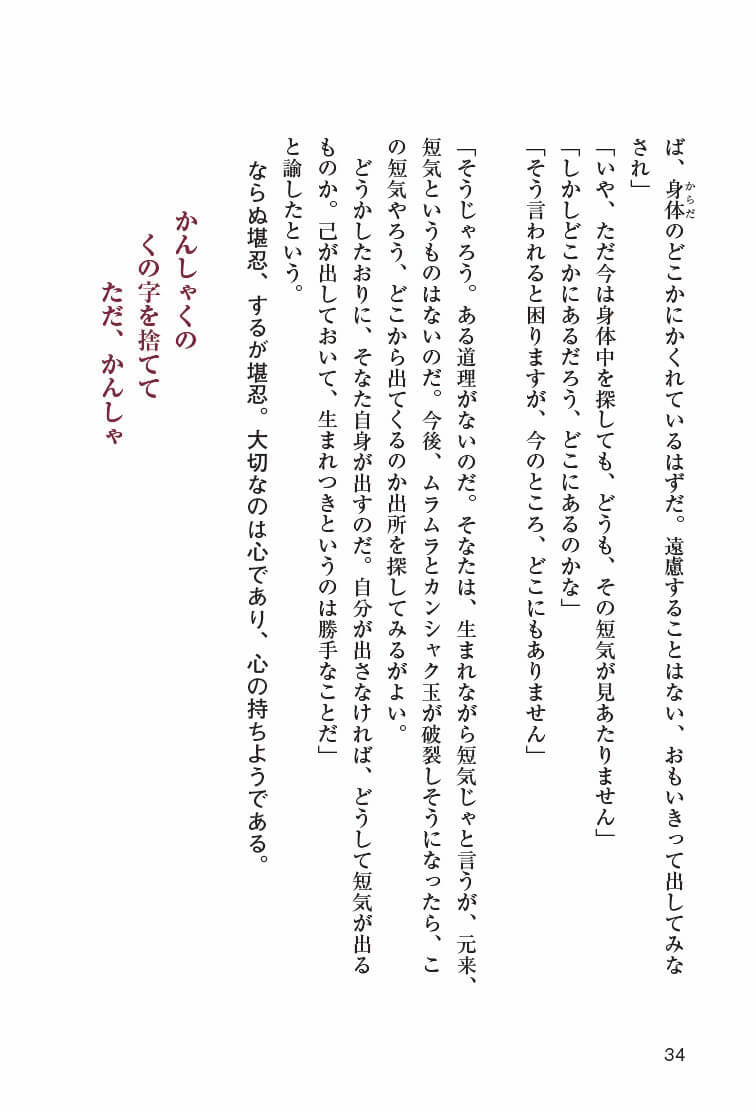 ば、身体のどこかにかくれているはずだ。遠慮することはない、おもいきって出してみな
からだ
され」
「いや、ただ今は身体中を探しても、どうも、その短気が見あたりません」
「しかしどこかにあるだろう、どこにあるのかな」
「そう言われると困りますが、今のところ、どこにもありません」
「そうじゃろう。ある道理がないのだ。そなたは、生まれながら短気じゃと言うが、元来、
短気というものはないのだ。今後、ムラムラとカンシャク玉が破裂しそうになったら、こ
の短気やろう、どこから出てくるのか出所を探してみるがよい。
どうかしたおりに、そなた自身が出すのだ。自分が出さなければ、どうして短気が出る
ものか。己が出しておいて、生まれつきというのは勝手なことだ」
と諭したという。
ならぬ堪忍、するが堪忍。大切なのは心であり、心の持ちようである。
かんしゃくの
くの字を捨てて
ただ、かんしゃ
34